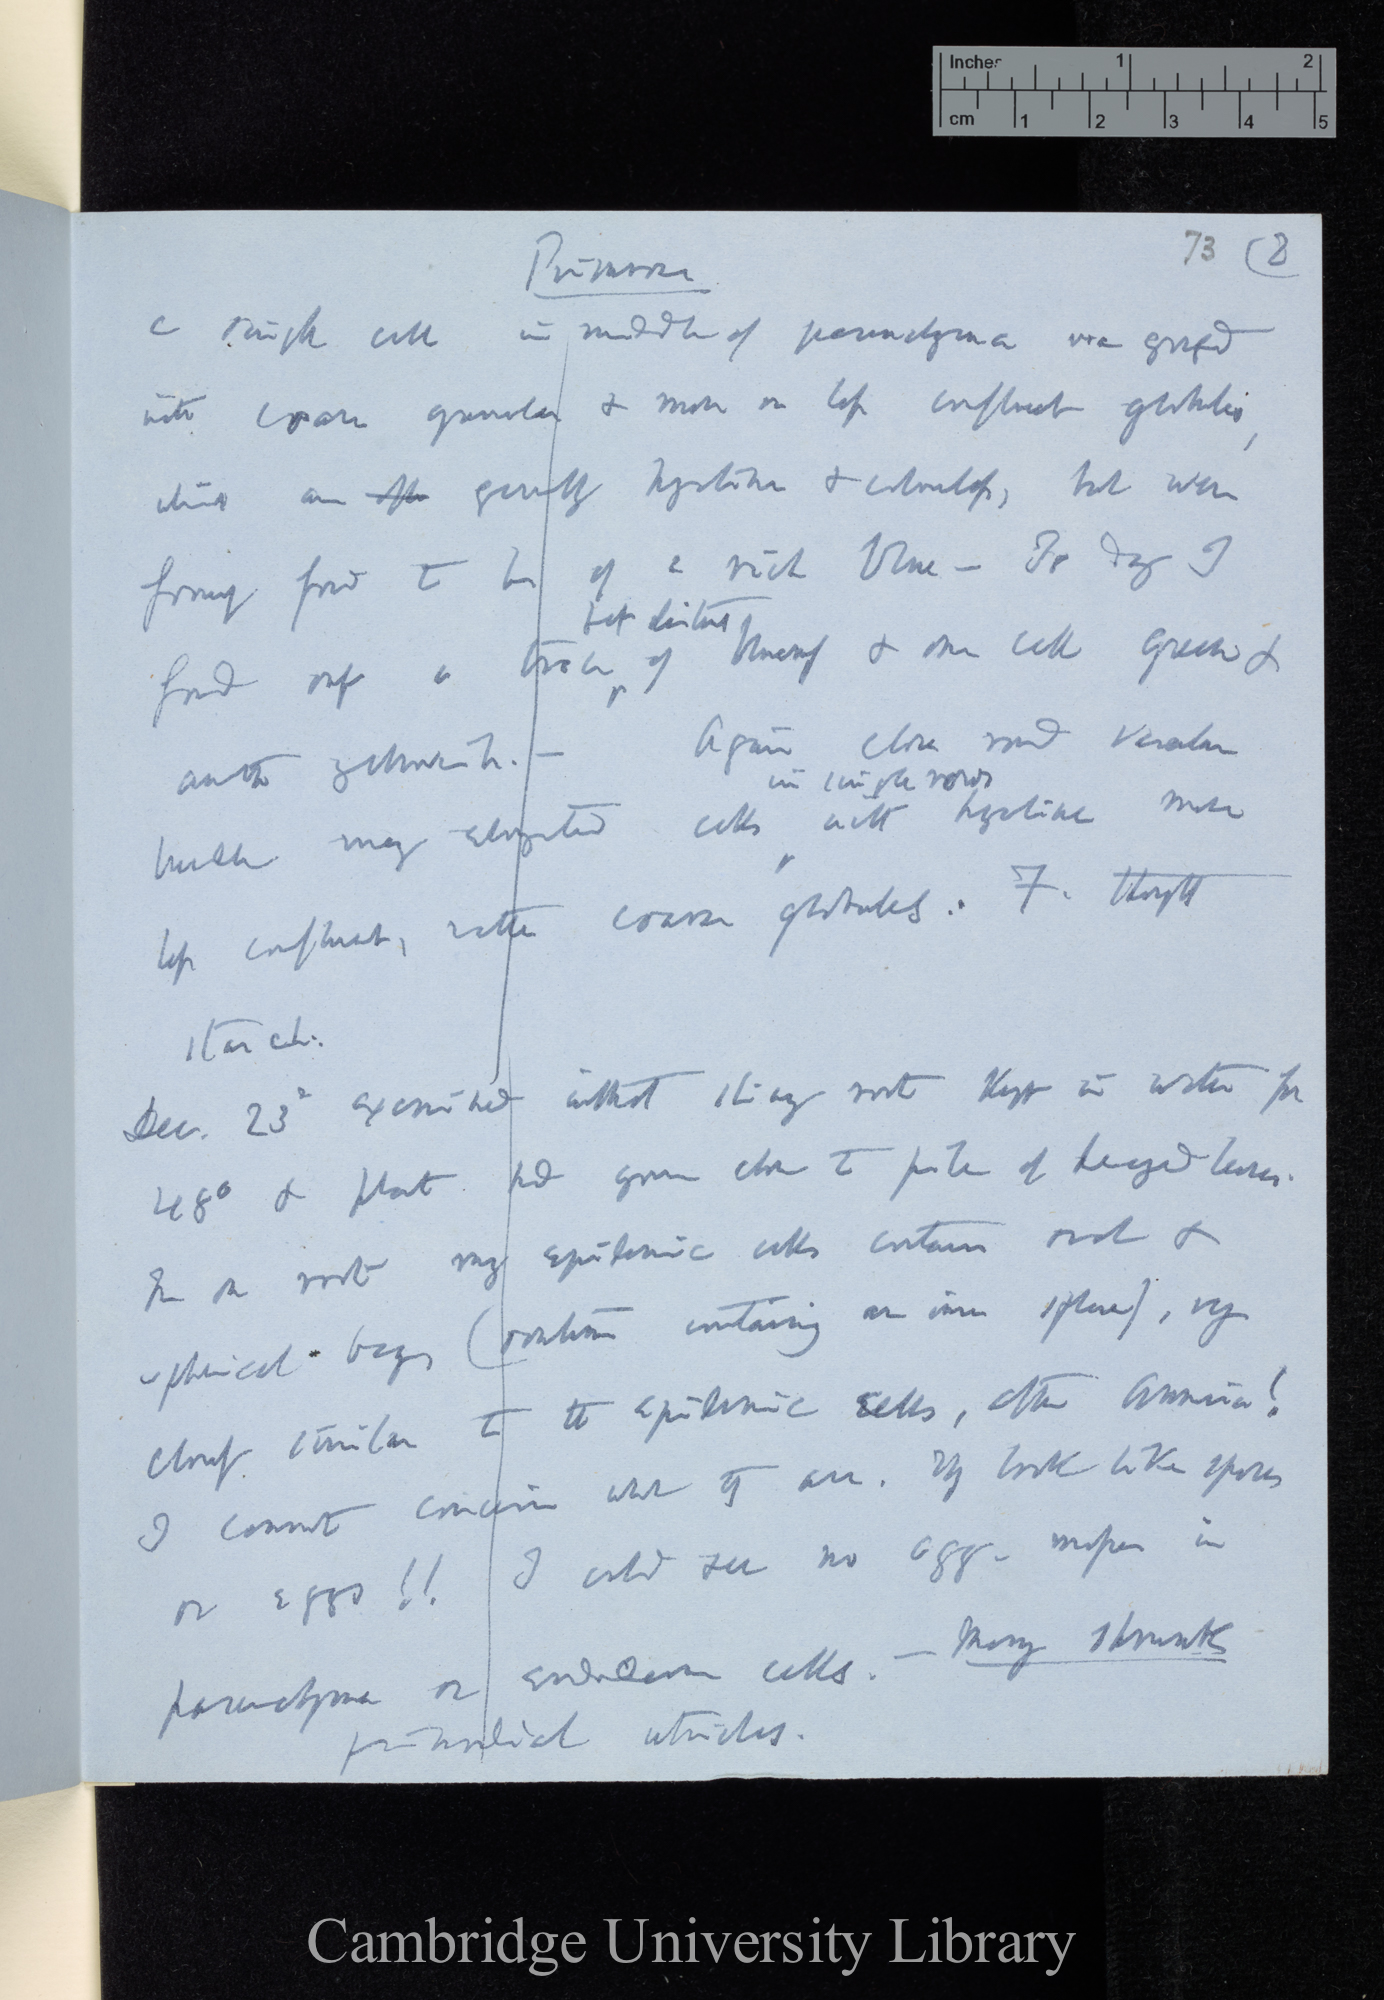 Inches 1 2
cm 1 2 3 4 5
73 (2
Primrose
a single cell in middle of parenchyma was gorged
with coarse granular & more or less confluent globules,
which are generally hyaline & colourless, but were
formerly found to be of a rich blue — To day I
but distinct
found only a trace of blueness & one cell green &
another yellowish. — Again close round vascular
in single rows
bundle many elongated cells with hyaline more
less confluent, rather coarse globules. F. thought
starch.
Dec. 23d examined without slicing root kept in water for
48° & plant had grown close to pile of decayed leaves.
In one root many epidermic cells contain oval &
spherical bags (sometimes containing an inner sphere), very
closely similar to the epidermic cells, after Ammonia!
I cannot conceive what they are. They look like spores
or eggs!! I could see no agg. masses in
parenchyma or endoderm cells. — Many shrunk
primordial utricles.
Cambridge University Library